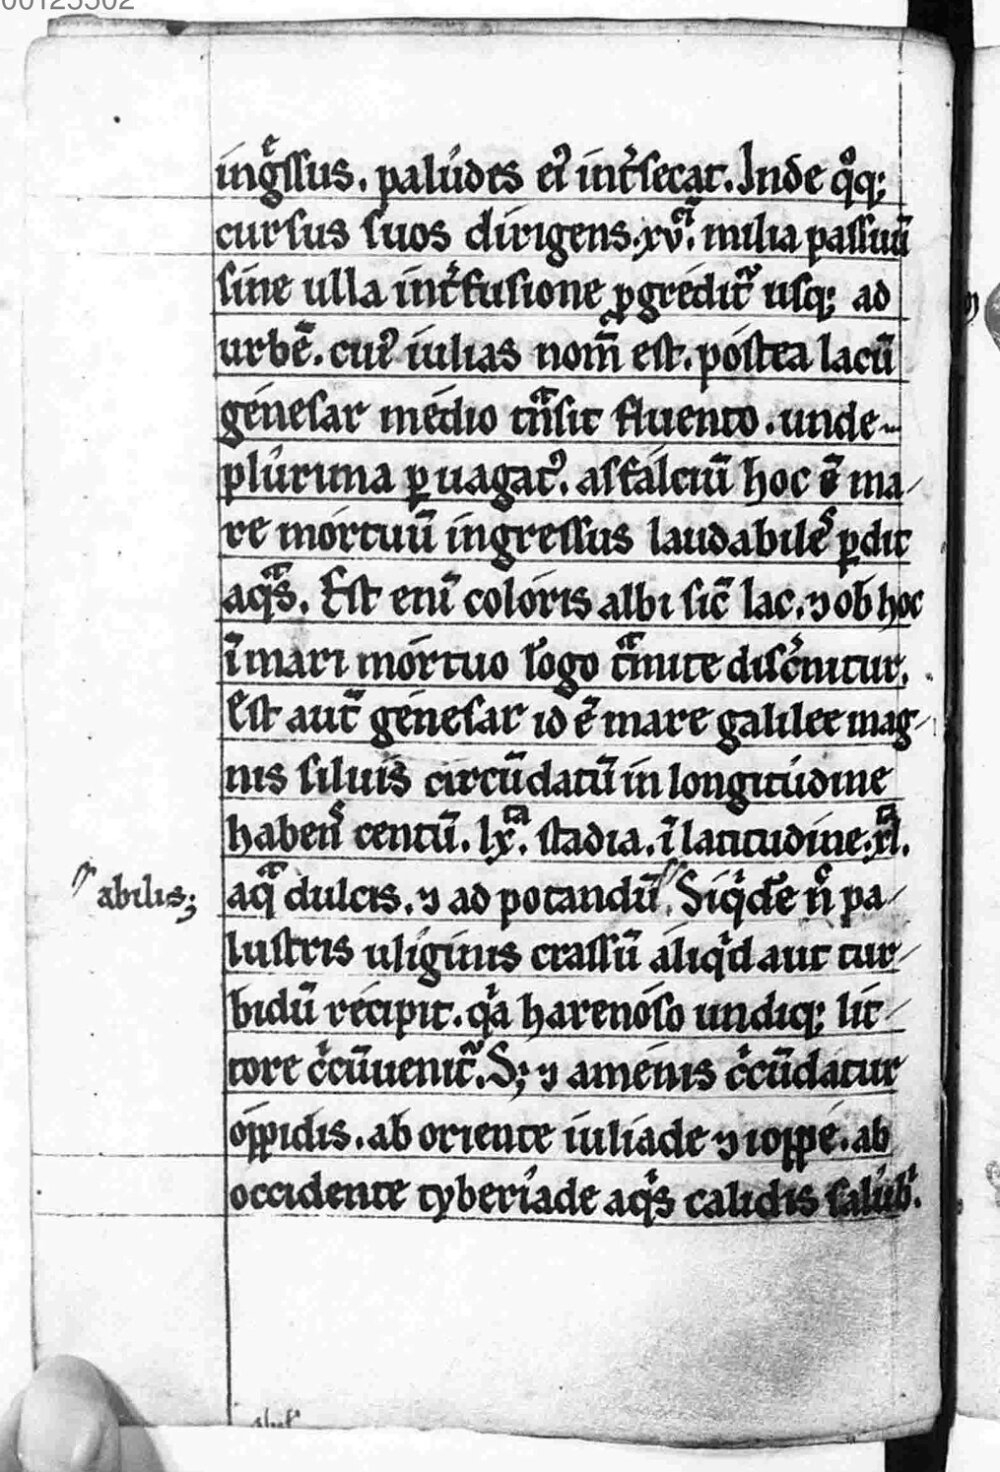 00125502
ingͤſſus. paludes eiꝰ int̾ſecat. Inde qͦq;
curſus ſuos dirigens. xvͥ. milia paſſuū
ſine ulla int̾fuſione ꝓgredit᷑ uſq; ad
urbē. cuiꝰ iulias nom̄ eſt. poſtea lacū
geneſar medio tͣnſit fluento. unde
plurima ꝑuagatᷣ. aſfalciū hoc ē ma/
re mortuū ingreſſus laudabileˢ ꝑdit
aqͣs. Eſt eni̅ coloris albi ſic̄ lac. ⁊ ob hoc
i̅ mari mortuo lo̅go tͣmite diſc̾nitur.
Eſt aut̄ geneſar id ē mare galilee mag/
nis ſiluis circūdatū in longitudine
habenˢ centū. lxͭᵃ. ſtadia. i̅ latitudine. xl.
abilis;
aqͣ dulcis. ⁊ ad potandū. Siqͥdē n̄ pa/
luſtris uliginis craſſū aliqͥd aut tur/
bidū recipit. qͥa harenoſo undiq; lit/
tore cͥcūuenit᷑. S; ⁊ amenis cͥcūdatur
oppidis. ab oriente iuliade ⁊ ioppe. ab
occidente tyberiade aqͥs calidis ſalubͥ.